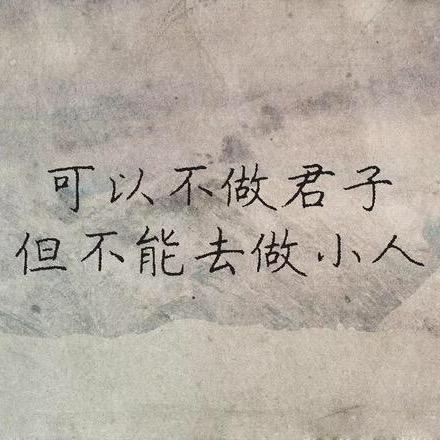 可以不做君子
但不能去做小人